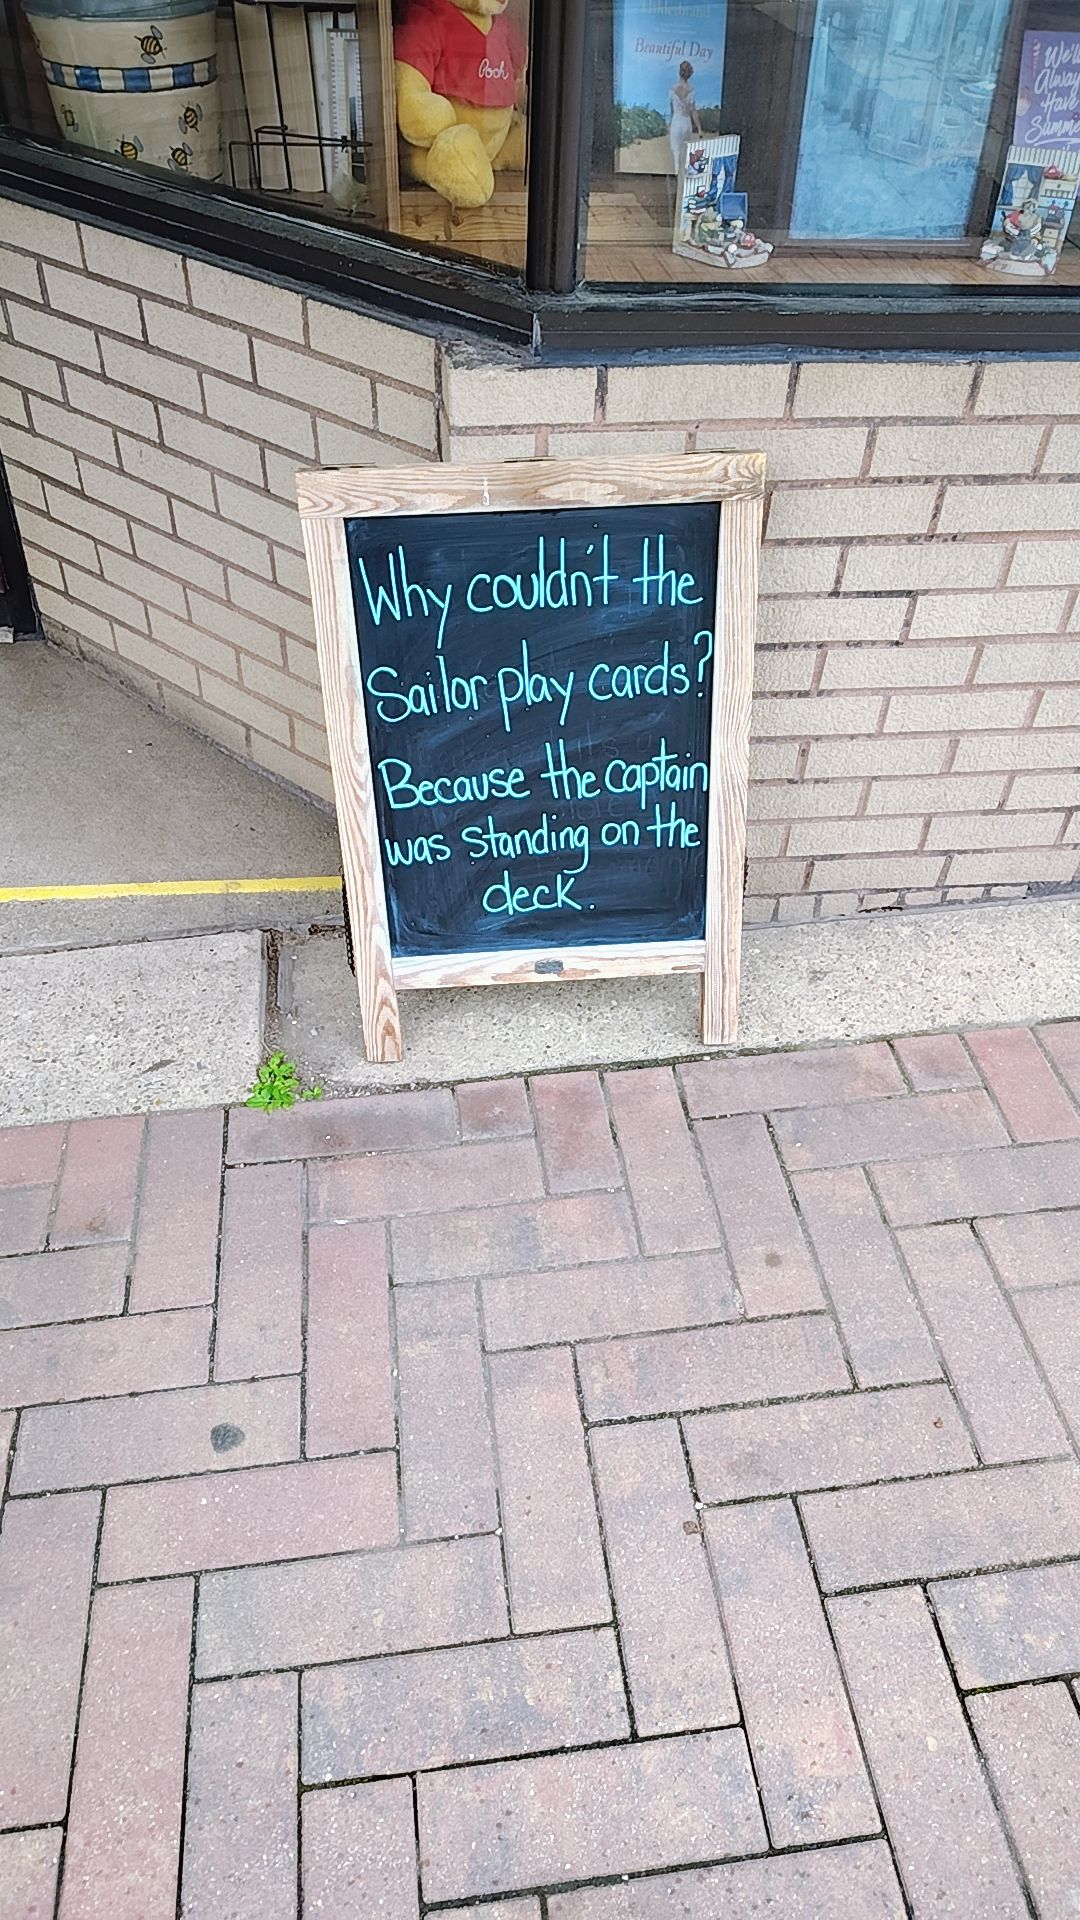 Hilderbrand
Beautiful Day
Pooh
We'll
Always
Have
Summer
Why couldn't the
Sailor play cards?
Because the captain
was standing on the
deck.